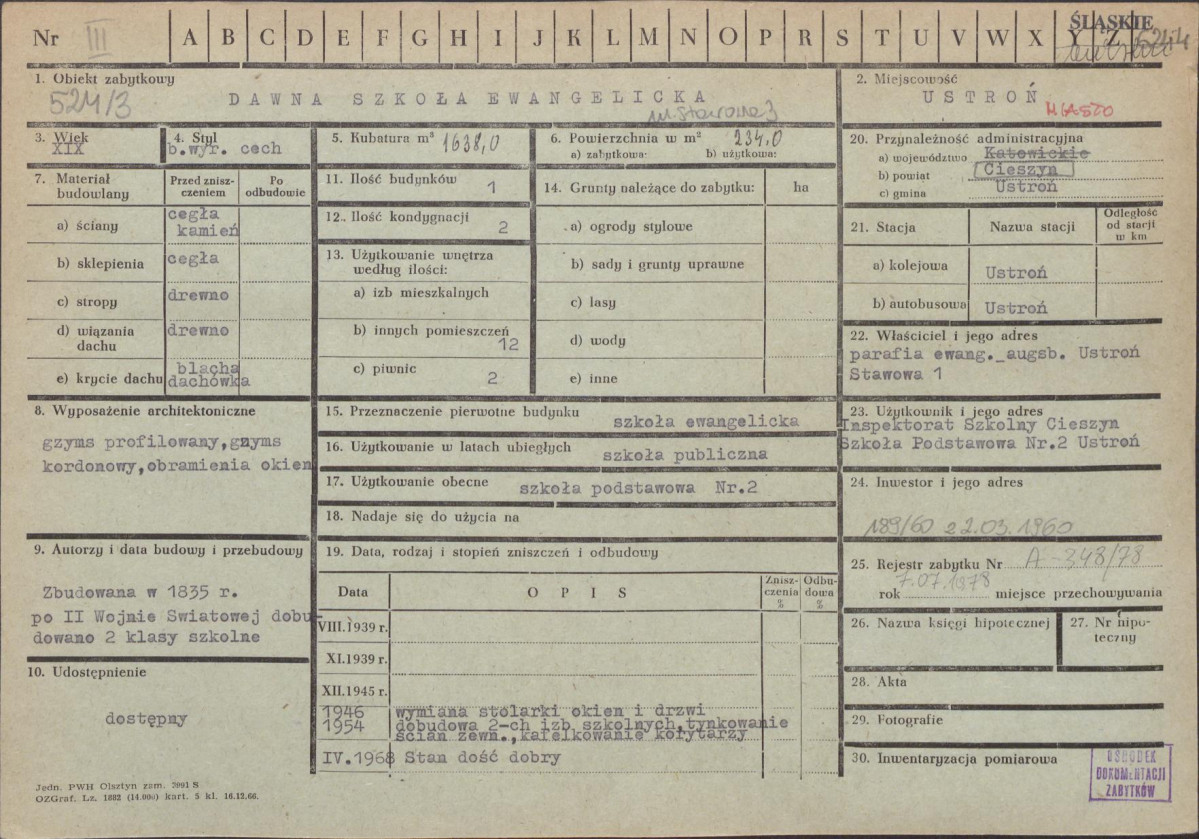 Nr III A B C D E F G H I J K L M N O P R S T U V W X Y Z
ŚLĄSKIE
5244
1. Obiekt zabytkowy
524/3
DAWNA SZKOŁA EWANGELICKA
2. Miejscowość
USTROŃ
MIASTO
3. Wiek
XIX
4. Styl
b.wyr. cech
5. Kubatura m³ 1638,0
6. Powierzchnia w m² 234,0
a) zabytkowa: b) użytkowa:
20. Przynależność administracyjna
a) województwo Katowickie
b) powiat Cieszyn
c) gmina Ustroń
7. Materiał budowlany
Przed zniszczeniem
Po odbudowie
a) ściany cegła kamień
b) sklepienia cegła
c) stropy drewno
d) wiązania dachu drewno
e) krycie dachu blacha dachówka
11. Ilość budynków 1
12. Ilość kondygnacji 2
13. Użytkowanie wnętrza
według ilości:
a) izb mieszkalnych
b) innych pomieszczeń 12
c) piwnic 2
14. Grunty należące do zabytku: ha
a) ogrody stylowe
b) sady i grunty uprawne
c) lasy
d) wody
e) inne
21. Stacja Nazwa stacji Odległość od stacji w km
a) kolejowa Ustroń
b) autobusowa Ustroń
22. Właściciel i jego adres
parafia ewang._augsb. Ustroń
Stawowa 1
8. Wyposażenie architektoniczne
gzyms profilowany,gzyms
kordonowy,obramienia okien
15. Przeznaczenie pierwotne budynku
szkoła ewangelicka
16. Użytkowanie w latach ubiegłych
szkoła publiczna
17. Użytkowanie obecne szkoła podstawowa Nr.2
18. Nadaje się do użycia na
23. Użytkownik i jego adres
Inspektorat Szkolny Cieszyn
Szkoła Podstawowa Nr.2 Ustroń
24. Inwestor i jego adres
189/60 22.03.1960
9. Autorzy i data budowy i przebudowy
Zbudowana w 1835 r.
po II Wojnie Swiatowej dobu-
dowano 2 klasy szkolne
19. Data, rodzaj i stopień zniszczeń i odbudowy
Data OPIS Zniszczenia % Odbudowa %
VIII.1939 r.
XI.1939 r.
XII.1945 r.
1946 wymiana stolarki okien i drzwi
1954 dobudowa 2-ch izb szkolnych,tynkowanie
ścian zewn.,kafelkowanie korytarzy
IV.1968 Stan dość dobry
25. Rejestr zabytku Nr A-348/78
rok 7.07.1978 miejsce przechowywania
26. Nazwa księgi hipotecznej
27. Nr hipo-
teczny
28. Akta
29. Fotografie
30. Inwentaryzacja pomiarowa
10. Udostępnienie
dostępny
OŚRODEK
DOKUMENTACJI
ZABYTKÓW
Jedn. PWH Olsztyn zam. 2991 S
OZGraf. Lz. 1882 (14.000) kart. 5 kl. 16.12.66.